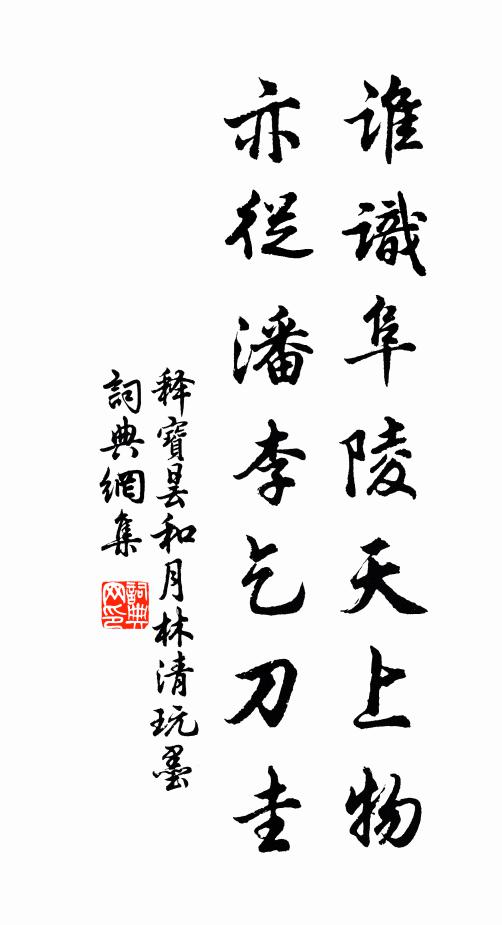 誰識阜陵天上物
亦從潘李乞刀圭
释寶曇和月林清玩墨
詞典網集
詞典网印